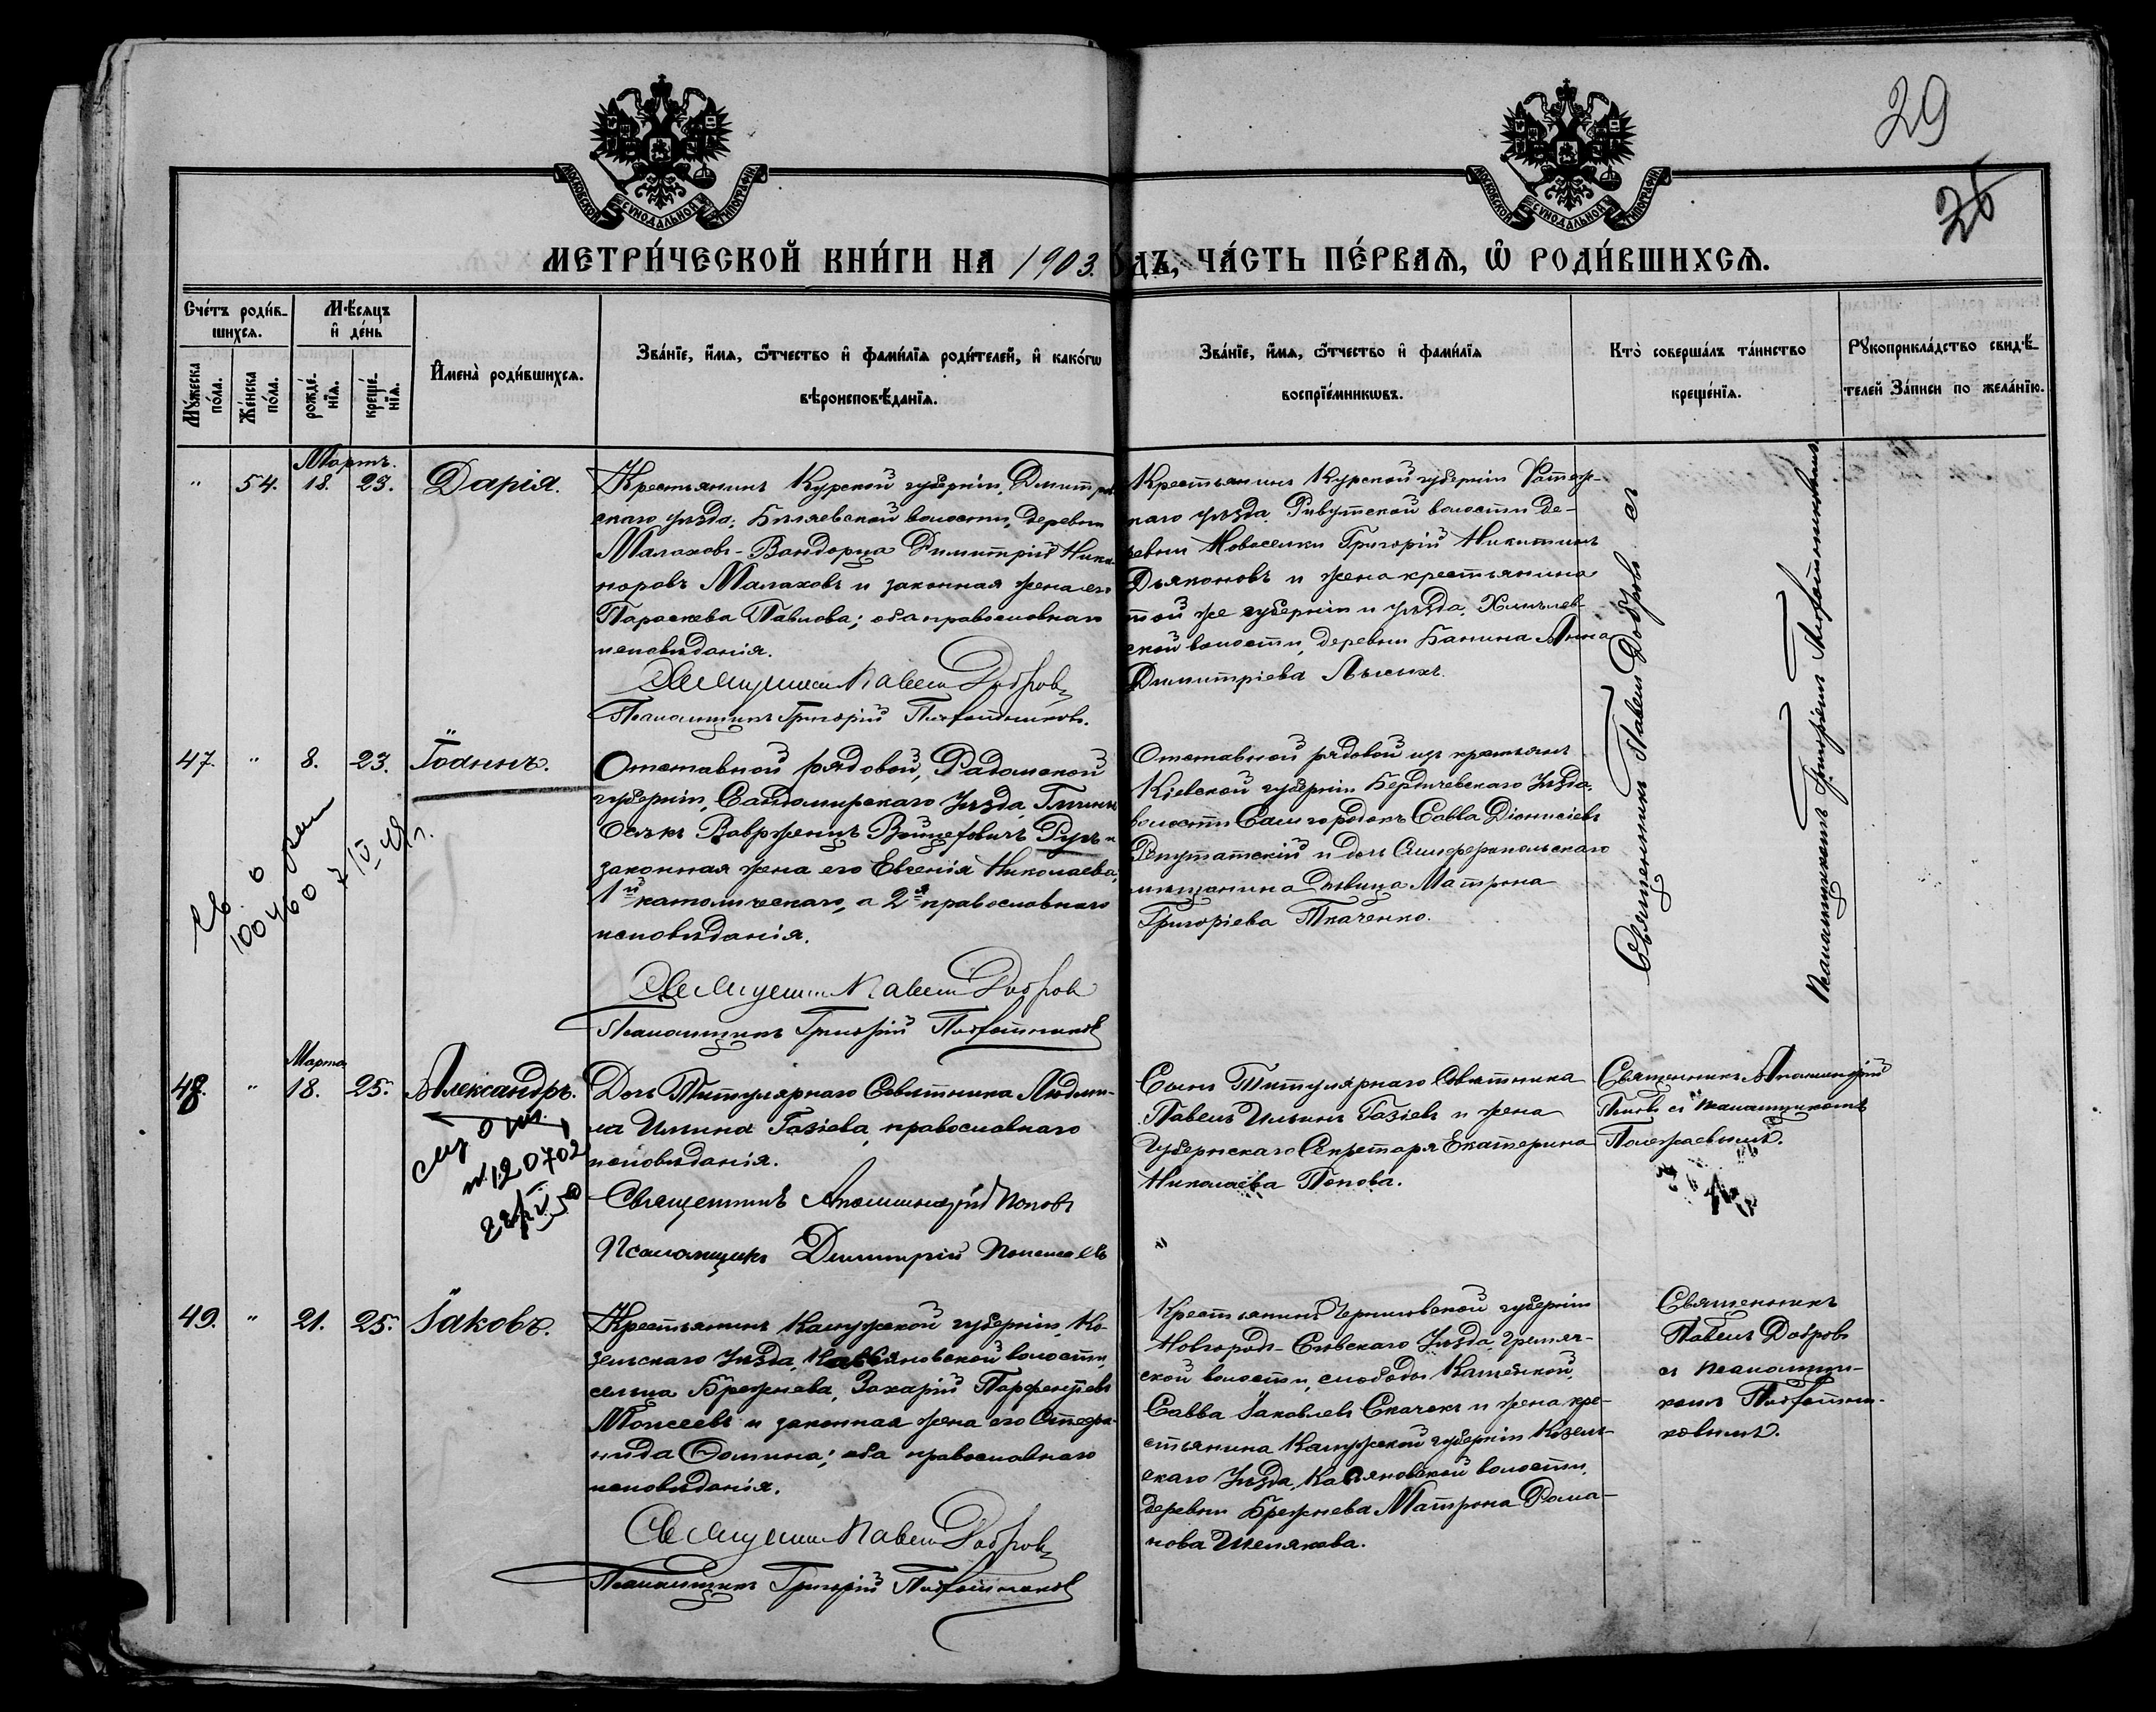 29
26
МОСКОВСКОЙ СѴНОДАЛЬНОЙ ТИПОГРАФІИ
МОСКОВСКОЙ СѴНОДАЛЬНОЙ ТИПОГРАФІИ
МЕТРИ́ЧЕСКОЙ КНИ́ГИ НА 1903. ДЪ, ЧА́СТЬ ПЕ́РВАѦ, Ѡ РОДИ́ВШИХСѦ.
Сче́тъ роди́в-
шихсѧ.
Мѣ́сѧцъ
и҆ де́нь
Мꙋ́жеска по́ла.
Же́нска по́ла.
рожде́-
нїѧ.
креще́-
нїѧ.
И҆мена̀ роди́вшихсѧ.
Зва́нїе, и҆́мѧ, ѻ҆́тчество и҆ фами́лїѧ роди́телей, и҆ како́гѡ
вѣроисповѣ́данїѧ.
Зва́нїе, и҆́мѧ, ѻ҆́тчество и҆ фами́лїѧ
воспрїе́мникѡвъ.
Кто̀ соверша́лъ та́инство
креще́нїѧ.
Рꙋкоприкла́дство свидѣ́-
телей за́писи по жела́нїю.
Мартъ.
" 54. 18. 23. Дарія.
Крестьянинъ Курской губерніи, Дмитров-
скаго уѣзда, Бѣляевской волости, деревни
Малахова-Вандорца Димитрій Ника-
норовъ Малаховъ и законная жена его
Параскева Павлова; оба православнаго
исповѣданія.
Священникъ Павелъ Добровъ
Псаломщикъ Григорій
Крестьянинъ Курской губерніи
скаго уѣзда, волости де-
ревни Новоселки Григорій Никитинъ
Дьяконовъ и жена крестьянина
той же губерніи и уѣзда,
ской волости, деревни Банина Анна
Димитріева Лысыхъ.
Священникъ Павелъ Добровъ съ
Псаломщикомъ Григоріемъ
47. " 8. 23. Іоаннъ.
Отставной рядовой, Радомской
губерніи, Сандомирскаго уѣзда,
Осѣкъ Вавржецъ Войцеховичъ Рузъ и
законная жена его Евгенія Николаева,
1й католическаго, а 2я православнаго
исповѣданія.
Священникъ Павелъ Добровъ
Псаломщикъ Григорій
Отставной рядовой изъ крестьянъ
Кіевской губерніи Бердичевскаго уѣзда,
волости Самгородокъ Савва Діонисіевъ
Депутатскій и дочь Симферопольскаго
мѣщанина дѣвица Матрона
Григоріева Ткаченко.
Св. о
100460
7/IV 49 г.
Марта
48. " 18. 25. Александръ.
№ 120702
Дочь Титулярнаго Совѣтника Людми-
ла Ильина Газіева, православнаго
исповѣданія.
Священникъ Аполлинарій Поповъ
Псаломщикъ Димитрій Полежаевъ
Сынъ Титулярнаго Совѣтника
Павелъ Ильинъ Газіевъ и жена
Губернскаго Секретаря Екатерина
Николаева Попова.
Священникъ Аполлинарій
Поповъ съ псаломщикомъ
Полежаевымъ.
49. " 21. 25. Іаковъ.
Крестьянинъ Калужской губерніи, Ко-
зельскаго уѣзда, волости,
сельца Брежнева, Захарій Парфентіевъ
Моисеевъ и законная жена его Степа-
нида Фомина; оба православнаго
исповѣданія.
Священникъ Павелъ Добровъ
Псаломщикъ Григорій
Крестьянинъ Черниговской губерніи
Новгородъ-Сѣверскаго уѣзда, Гремяч-
ской волости, слободы Каменской,
Савва Іаковлевъ Скачекъ и жена кре-
стьянина Калужской губерніи Козель-
скаго уѣзда, волости,
деревни Брежнева Матрона Рома-
нова Шелякова.
Священникъ
Павелъ Добровъ
съ псаломщи-
комъ